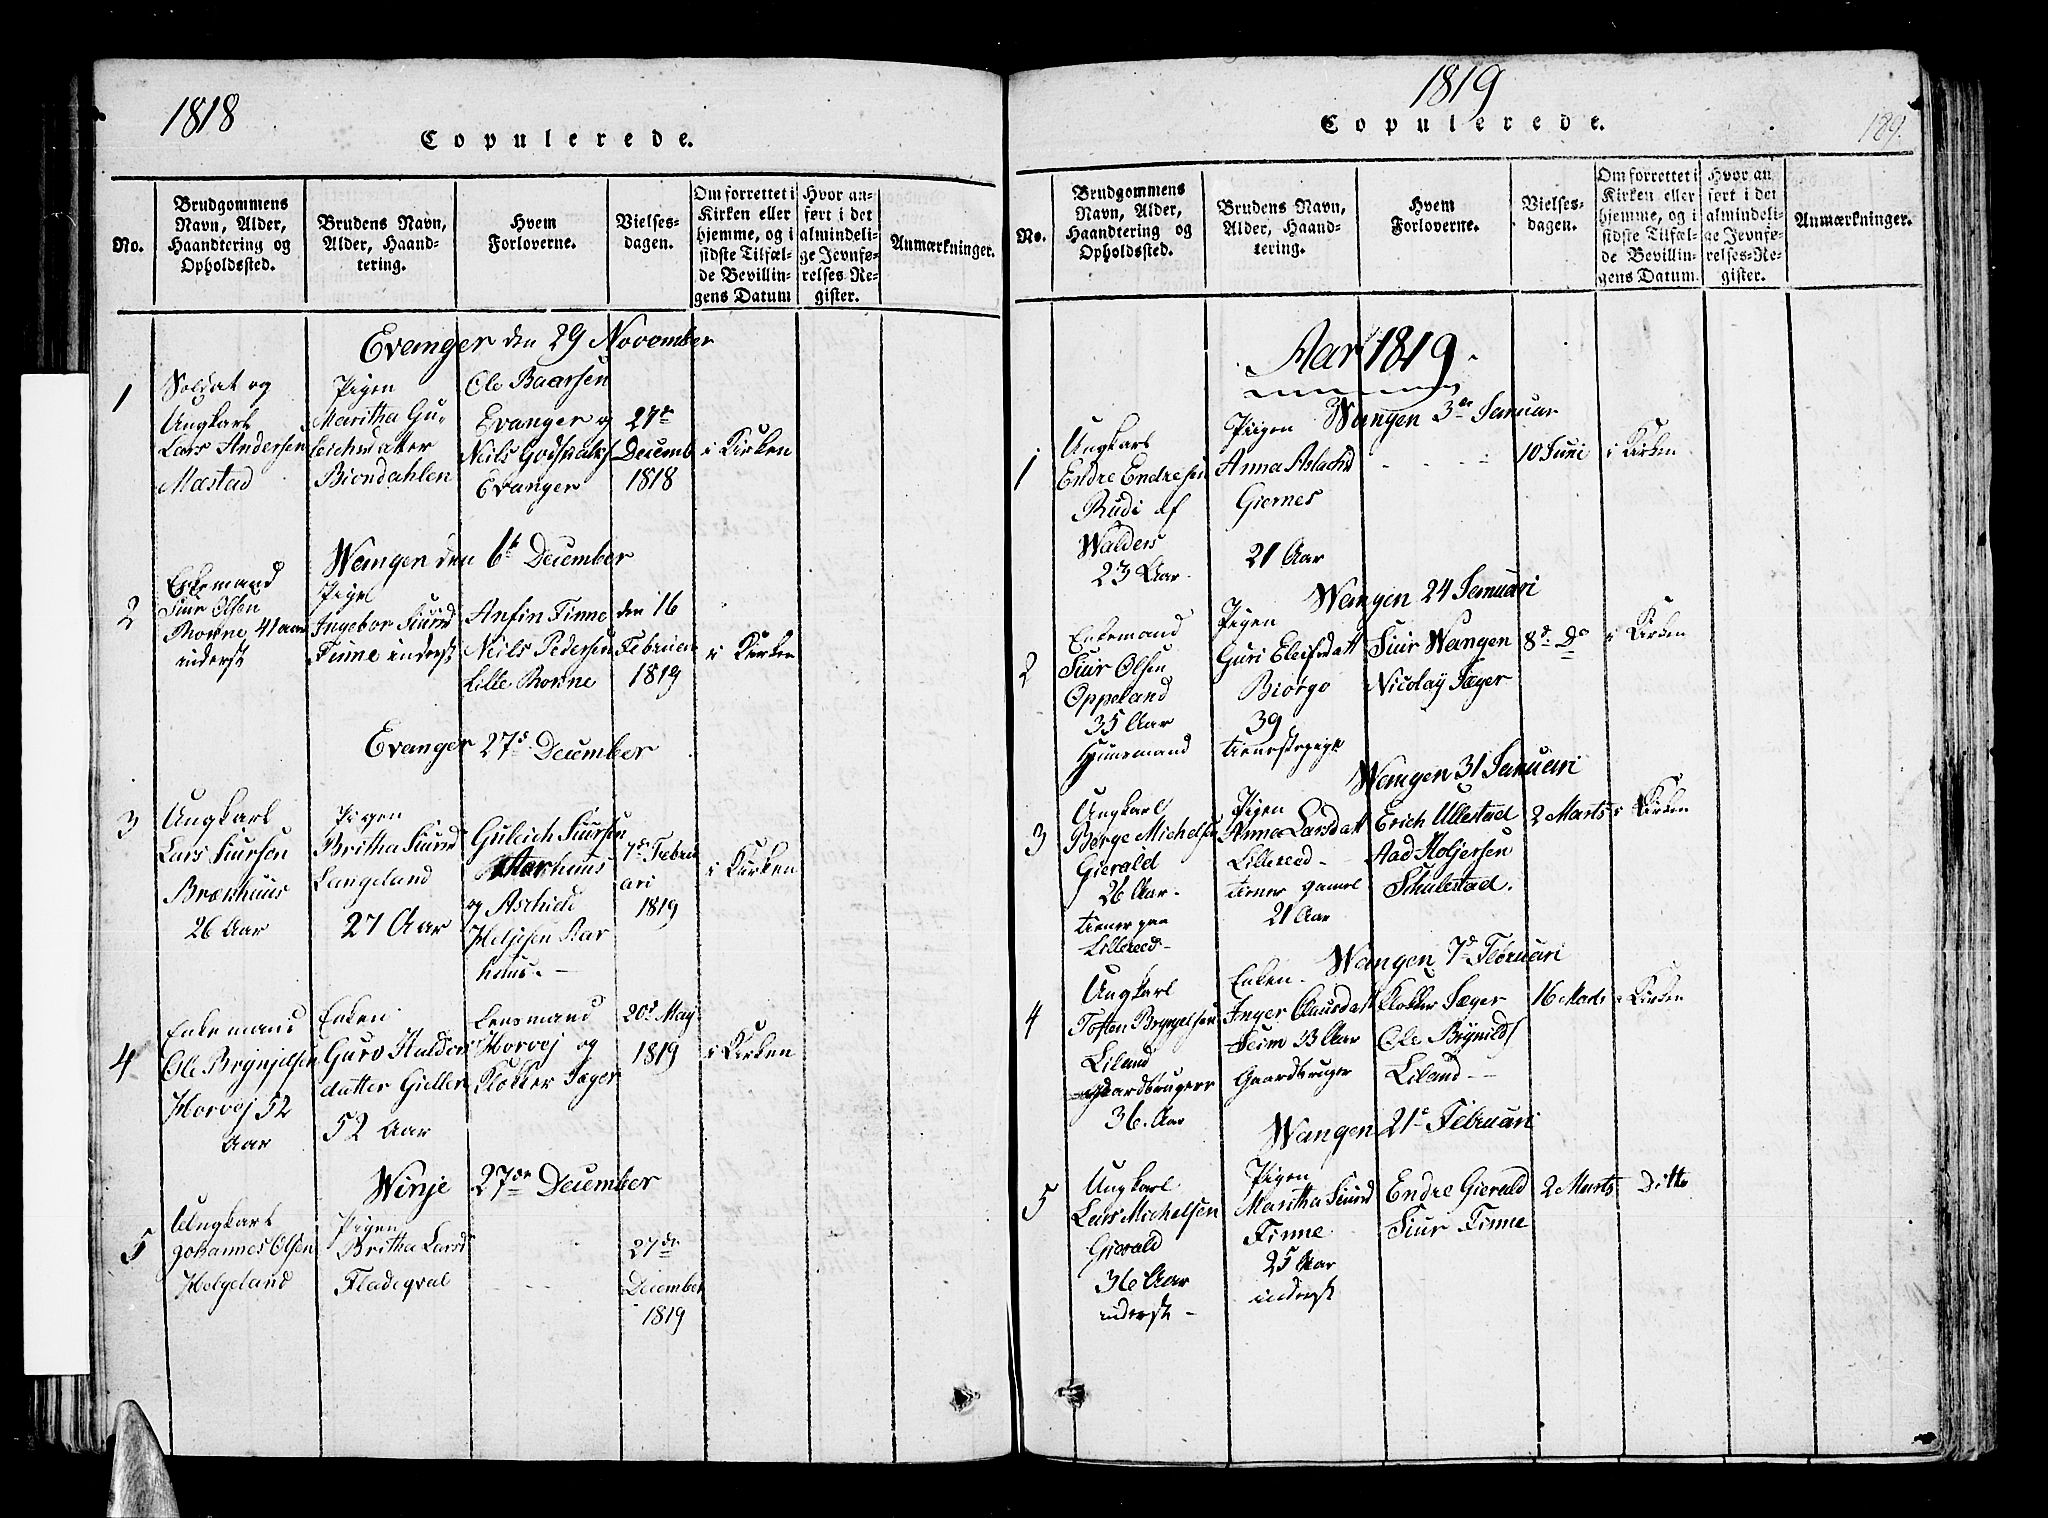 1818
Copulerede.
No.
Brudgommens
Navn, Alder,
Haandtering og
Opholdssted.
Brudens Navn,
Alder, Haand-
tering.
Hvem
Forloverne.
Vielses-
dagen.
Om forrettet i
Kirken eller
hjemme, og i
sidste Tilfæl-
de Bevillin-
gens Datum
Hvor an-
ført i det
almindeli-
ge Jevnfø-
relses-Re-
gister.
Anmærkninger.
Evanger den 29 November
1
Soldat og
Ungkarl
Lars Andersen
Mæstad
Pigen
Maritha Gu-
leichsdatter
Biondahlen
Ole Baarsen
Evanger og
Niels Godskalks
Evanger
27de
Decemb
1818
i Kirken
Wangen den 6te December
2
Enkemand
Siur Olsen
Ronne 41 aar
inderst
Pigen
Ingebor Siursd
Finne inderst
Anfin Finne
Niels Pedersen
Lille Ronne
den 16
Februari
1819
i Kirken
Evanger 27de December
3
Ungkarl
Lars Siursen
Brækhuus
26 Aar
Pigen
Britha Siursd
Langeland
27 Aar
Guleich Siursen
Aarhuus
og Aschield
Heljesen Aar
huus.
7de Febru
ari
1819
i Kirken
4
Enkemand
Ole Brynjelsen
Horvej 52
Aar
Enken
Guro Haldors
datter Gieller
52 Aar
Lensmand
Horvej og
Klokker Jæger
20de Maj
1819
i Kirken
Winje 27de December
5
Ungkarl
Johannes Olsen
Helgeland
Pigen
Britha Larsd
Fladeqval
27de
December
1819
1819
Copulerede.
189.
No.
Brudgommens
Navn, Alder,
Haandtering og
Opholdssted.
Brudens Navn,
Alder, Haand-
tering.
Hvem
Forloverne.
Vielses-
dagen.
Om forrettet i
Kirken eller
hjemme, og i
sidste Tilfæl-
de Bevillin-
gens Datum.
Hvor an
ført i det
almindeli-
ge Jevnfø-
relses-Re-
gister.
Anmærkninger.
Aar 1819.
Wangen 3de Januar
1
Ungkarl
Endre Endresen
Rudi af
Walders
23 Aar.
Pigen
Anna Aslachsd
Giernes
21 Aar
10 Juni
i Kirken
Wangen 24 Januari
2
Enkemand
Siur Olsen
Oppeland
35 Aar
Huusmand
Pigen
Guri Eleifsdatt
Biørgo
39
tienestepige
Siur Wangen
Nicolaÿ Jæger
8de Do
i Kirken
Wangen 31 Januari
3
Ungkarl
Børge Michelsen
Gierald
26 Aar.
tiener paa
Lillereed
Pigen
Anna Larsdatt
Lillereed
tiener gamel
21 Aar
Erich Ullestad
Aad Holjersen
Schulestad.
2 Marts
i Kirken
Wangen 7de Februari
4
Ungkarl
Tosten Bryngelsen
Liland
gaardbruger
36. Aar
Enken.
Inger Clausdatt
Seim 33 Aar
Gaardbruger
Klokker Jæger
Ole Brynilds
Liland
16 Marts
i Kirken
Wangen 21de Februari
5
Ungkarl
Lars Michelsen
Gierald
36 Aar
inderst
Pigen
Maritha Siursd
Finne
25 Aar
inderst
Endre Gierald
Siur Finne
2 Marts
Ditto